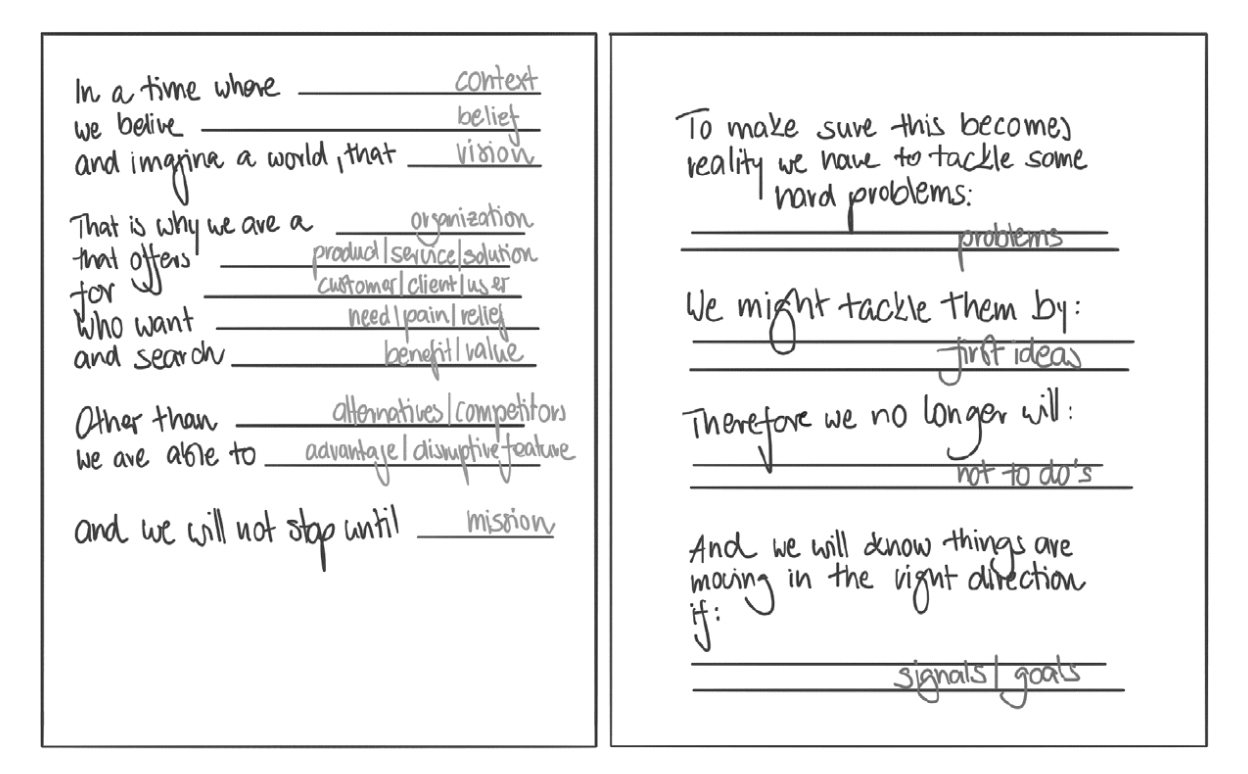 In a time where context
we belive belief
and imagina a world, that vision
That is why we are a organization
that offers product|service|solution
for customer|client|user
who want need|pain|relief
and search benefit|value
Other than alternatives|competitors
we are able to advantage|disruptive feature
and we will not stop until mission
To make sure this becomes
reality we have to tackle some
hard problems:
problems
We might tackle them by:
first ideas
Therefore we no longer will:
not to do's
And we will know things are
moving in the right direction
if:
signals|goals